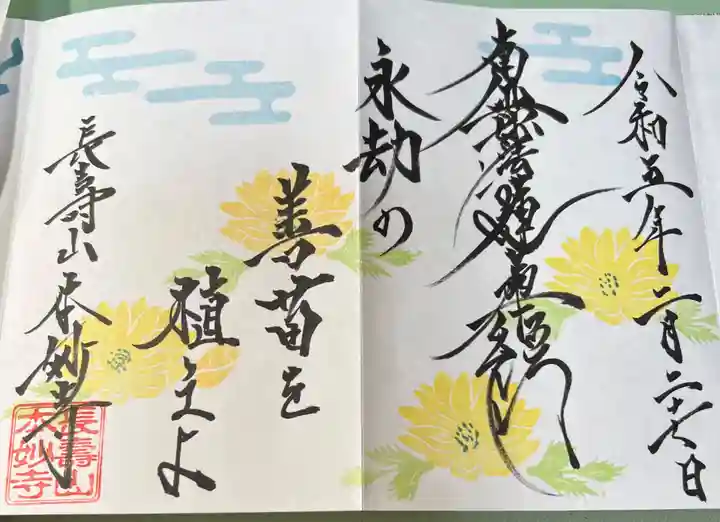 令和五年二月二十六日
南無妙法蓮華経
永劫の
善苗を
植えよ
長壽山本妙寺
長壽山
本妙寺